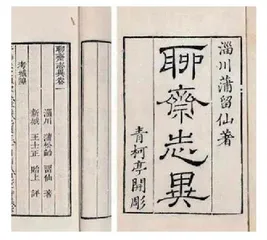 淄川蒲留仙著
聊齋志異
青柯亭開彫
聊齋志異卷一
淄川 蒲松齡 留仙 著
新城 王士正 貽上 評
考城隍